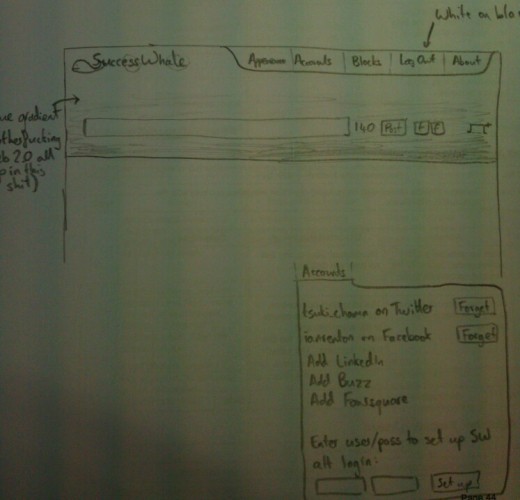 White on
SuccessWhale
Accounts
Blocks
Log Out
About
gradient
2.0 all
in this
shit)
140
Post
t
f
Accounts
on Twitter
Forget
ianrenton on Facebook
Forget
Add LinkedIn
Add Buzz
Add Foursquare
Enter user/pass to set up SW
alt login:
Set up